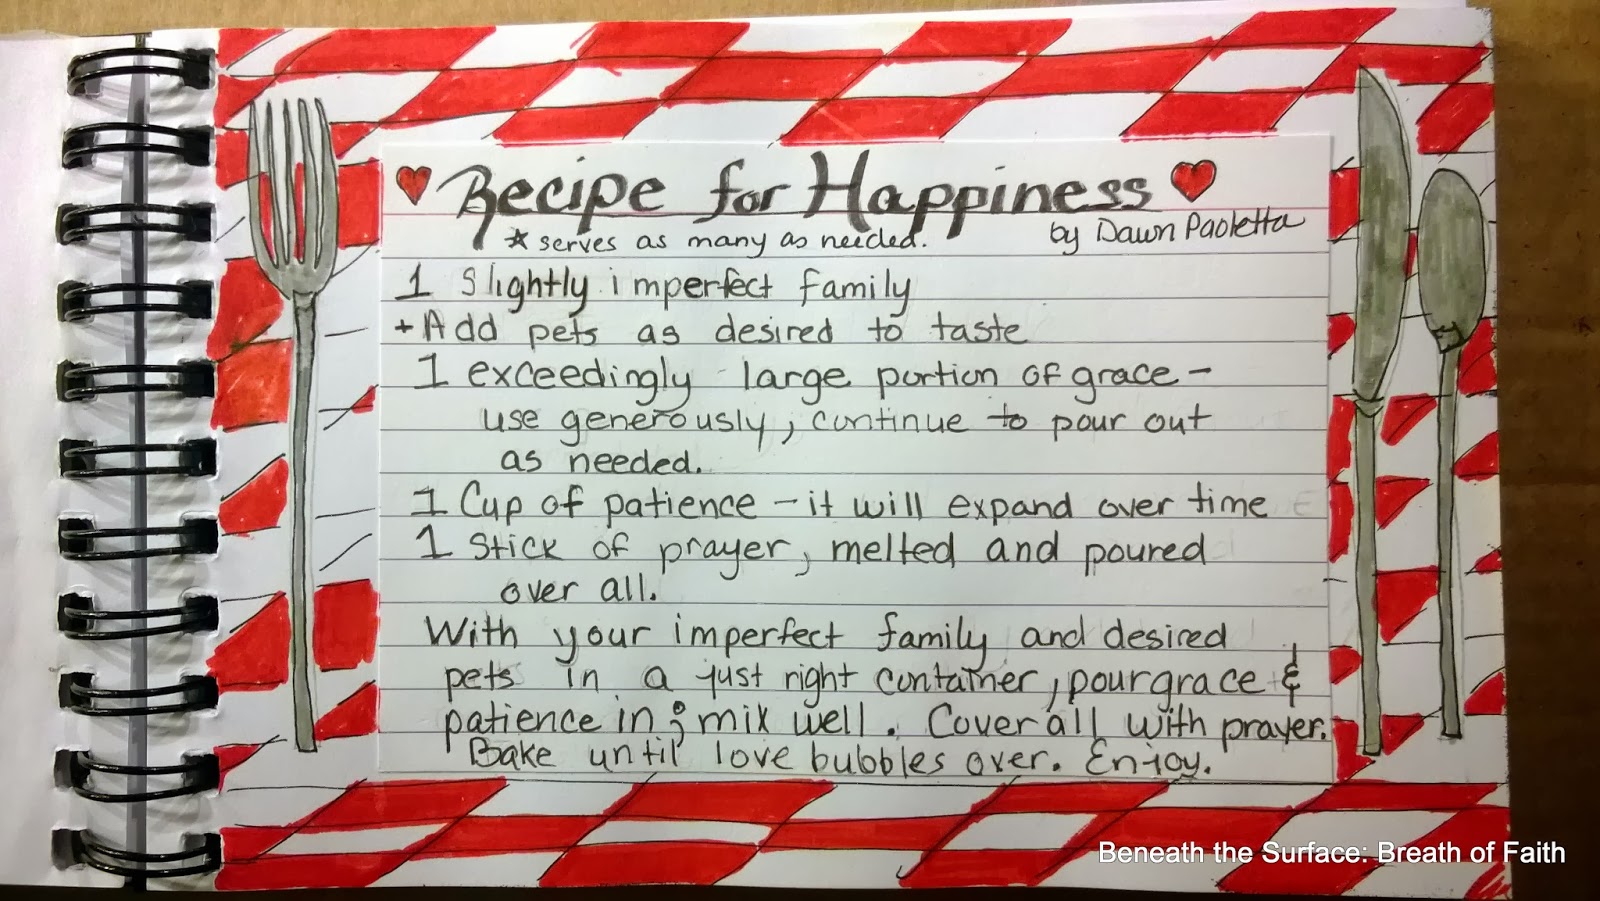 Recipe for Happiness
* serves as many as needed.
by Dawn Paoletta
1 Slightly imperfect family
+ Add pets as desired to taste
1 exceedingly large portion of grace -
use generously, continue to pour out
as needed.
1 Cup of patience - it will expand over time
1 Stick of prayer, melted and poured
over all.
With your imperfect family and desired
pets in a just right container, pour grace &
patience in; mix well. Cover all with prayer.
Bake until love bubbles over. Enjoy.
Beneath the Surface: Breath of Faith